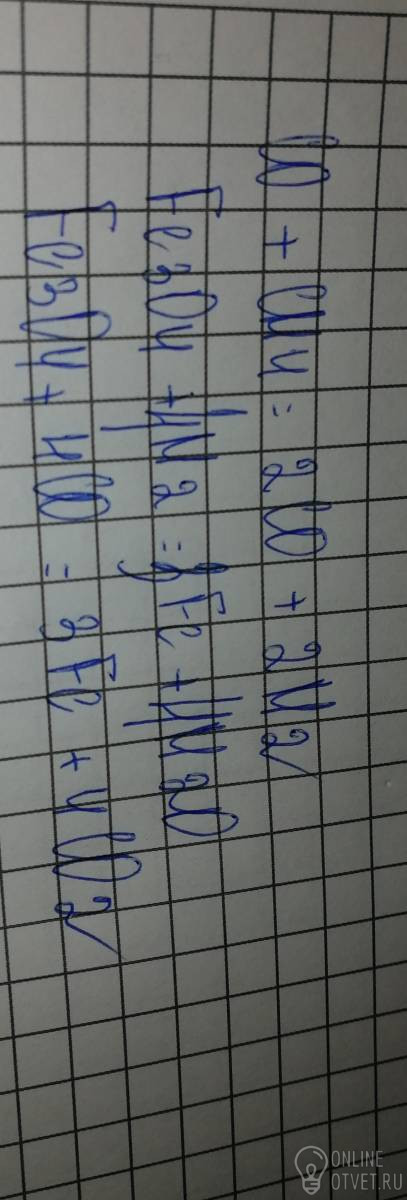 CO + CH4 = 2CO + 2H2
Fe3O4 + 4H2 = 3Fe + 4H2O
Fe3O4 + 4CO = 3Fe + 4CO2
ONLINE
OTVET.RU